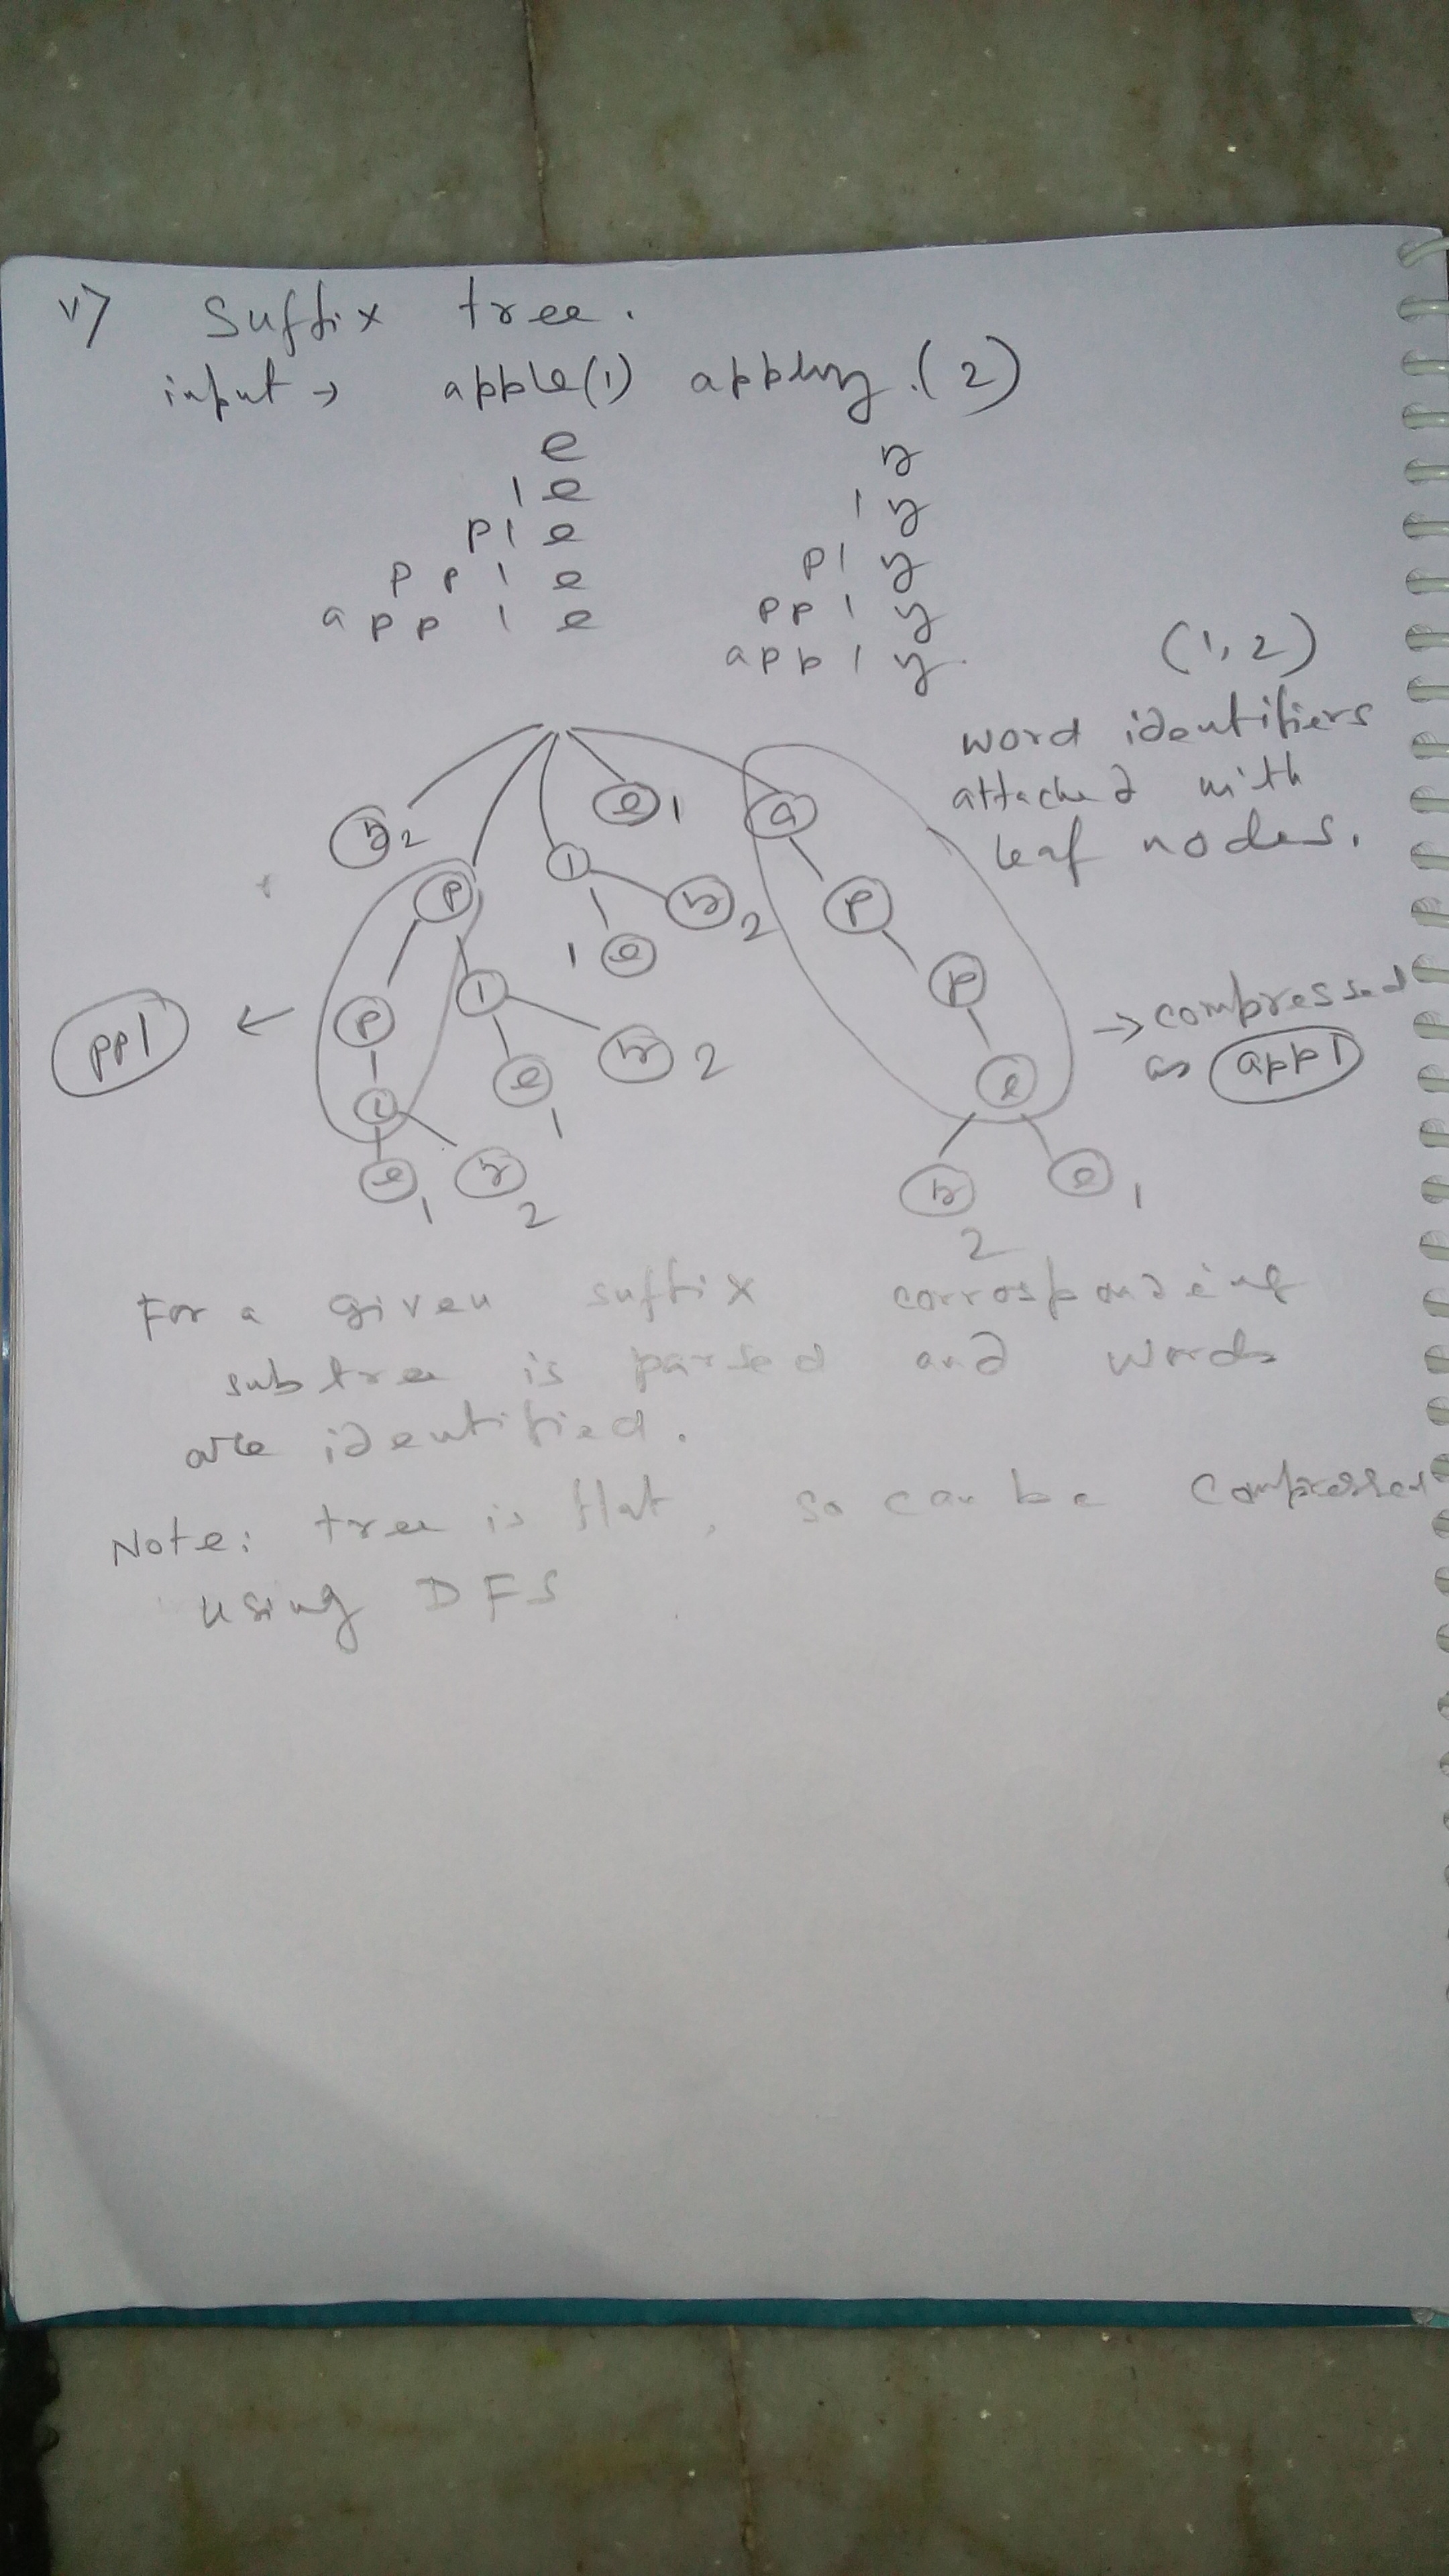 v) Suffix tree.
input → apple(1) apply.(2)
e y
l e l y
p l e p l y
p p l e p p l y
a p p l e a p p l y.
(1,2)
word identifiers
attached with
leaf nodes.
y 2 e 1 a
p l
y 2 p
1 e
p l p
ppl ← → compressed
as appl
e 1 y 2
l l
e 1 y 2 y 2 e 1
For a given suffix corrosponding
subtree is parsed and words
are identified.
Note: tree is flat, so can be compressed
using DFS